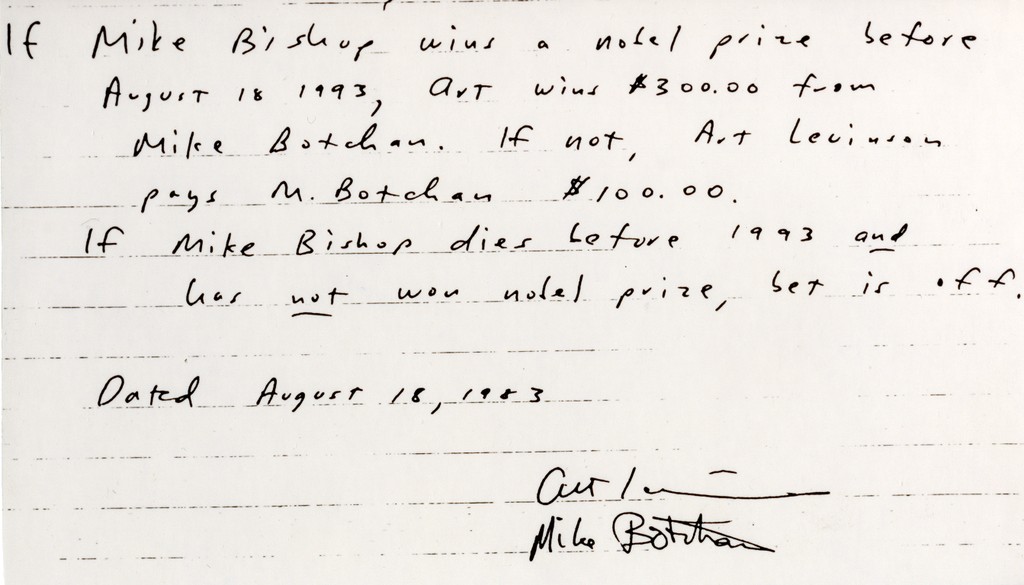 If Mike Bishop wins a nobel prize before
August 18 1993, Art wins $300.00 from
Mike Botchan. If not, Art Levinson
pays M. Botchan $100.00.
If Mike Bishop dies before 1993 and
has not won nobel prize, bet is off.
Dated August 18, 1983
Art Le
Mike Botchan